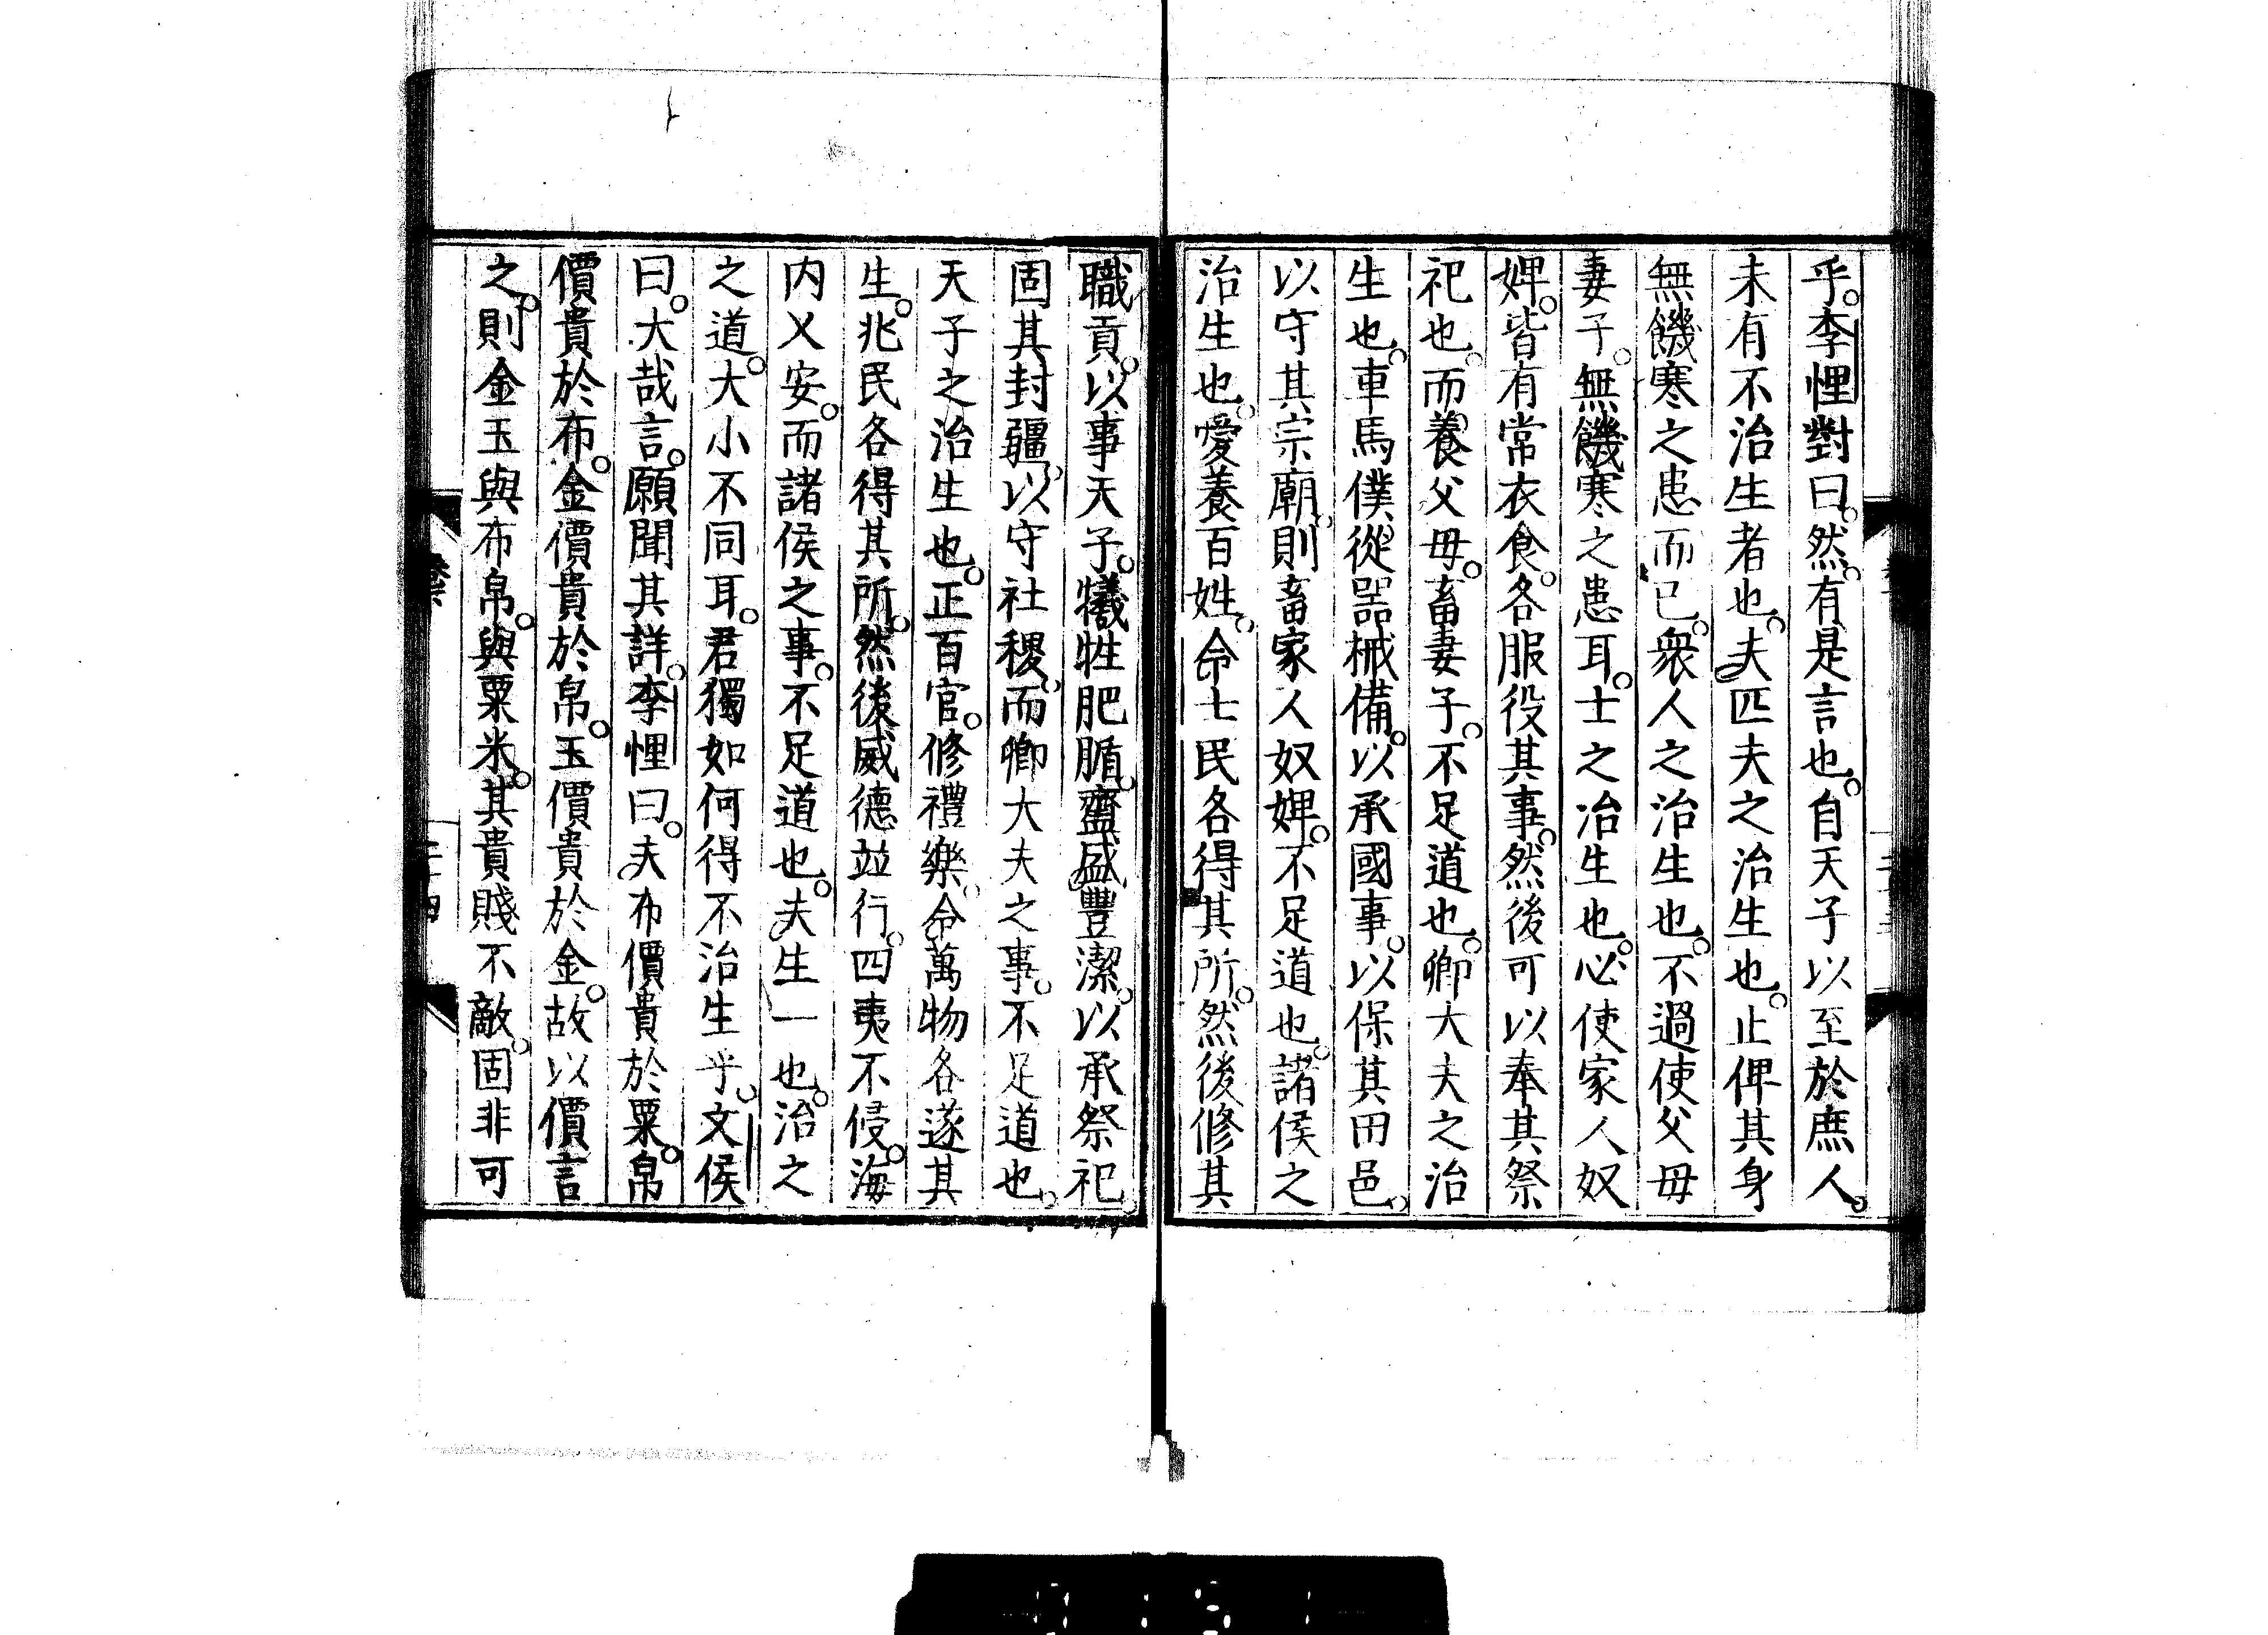 乎。李悝對曰。然。有是言也。自天子以至於庶人。
未有不治生者也。夫匹夫之治生也。止俾其身
無饑寒之患而已。衆人之治生也。不過使父母
妻子。無饑寒之患耳。士之治生也。必使家人奴
婢。皆有常衣食。各服役其事。然後可以奉其祭
祀也。而養父母。畜妻子。不足道也。卿大夫之治
生也。車馬僕從器械備。以承國事。以保其田邑。
以守其宗廟。則畜家人奴婢。不足道也。諸侯之
治生也。愛養百姓。命七民各得其所。然後修其
職貢。以事天子。犧牲肥腯。齍盛豐潔。以承祭祀。
固其封疆。以守社稷。而卿大夫之事。不足道也。
天子之治生也。正百官。修禮樂。命萬物各遂其
生。兆民各得其所。然後威德竝行。四夷不侵。海
内乂安。而諸侯之事。不足道也。夫生一也。治之
之道。大小不同耳。君獨如何得不治生乎。文侯
曰。大哉言。願聞其詳。李悝曰。夫布價貴於粟。帛
價貴於布。金價貴於帛。玉價貴於金。故以價言
之。則金玉與布帛。與粟米。其貴賤不敵。固非可